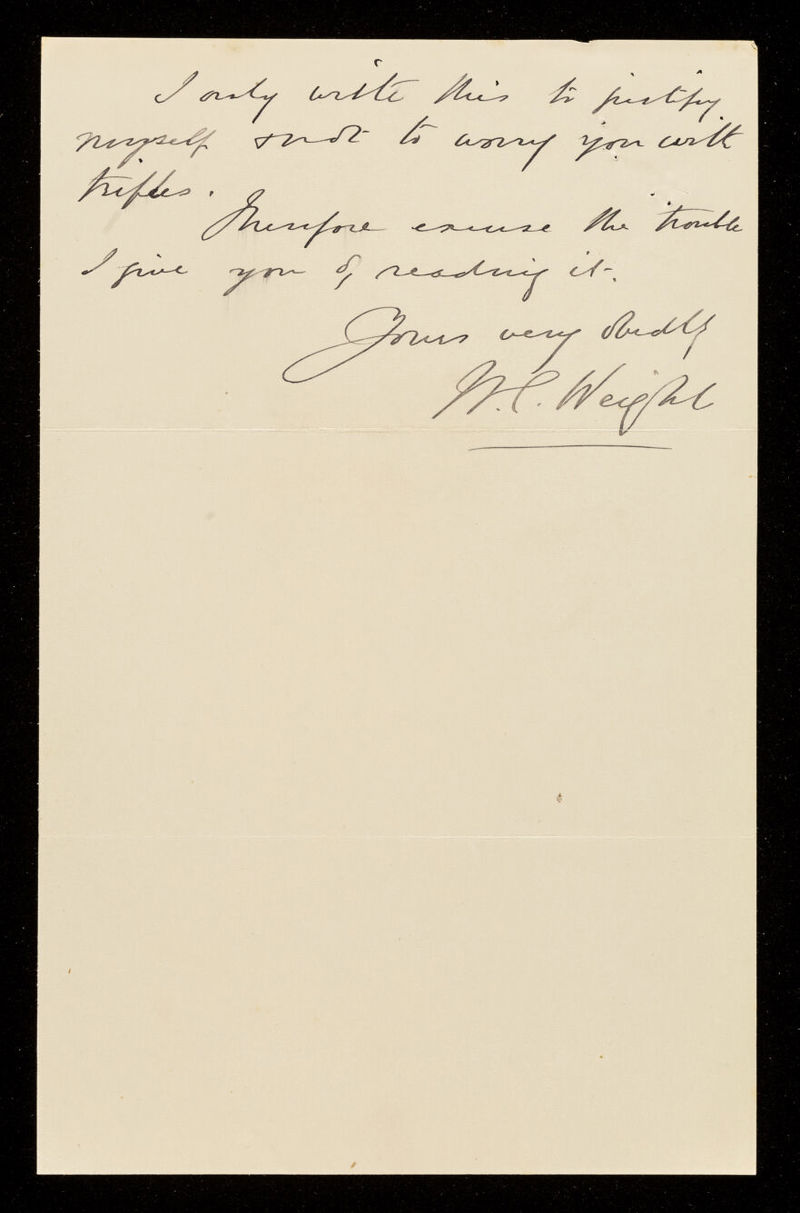 I only write this to justify
myself & not to worry you with
trifles.
Therefore excuse the trouble
I give you of reading it.
Yours very obedtly
W.C. Weight